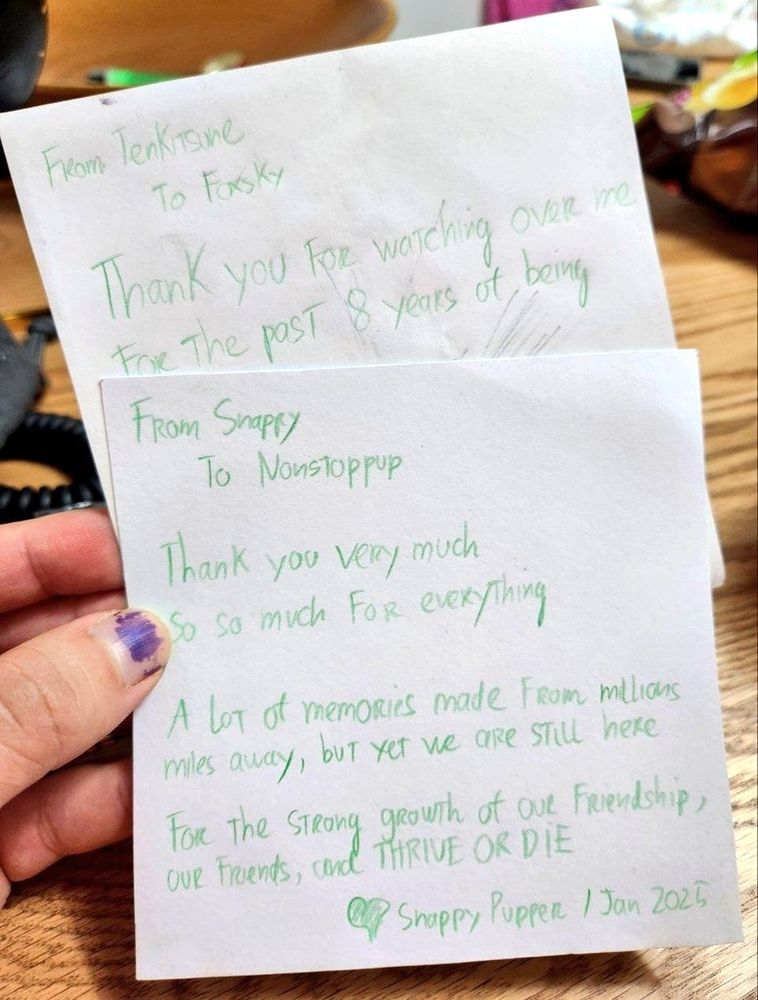 From TenKitsune
To Foxsky
Thank you For watching over me
For The past 8 years of being
From Snappy
To Nonstoppup
Thank you very much
So so much For everything
A Lot of memories made From millions
miles away, but yet we are still here
For the strong growth of our Friendship,
our Friends, and THRIVE OR DIE
Snappy Pupper / Jan 2025